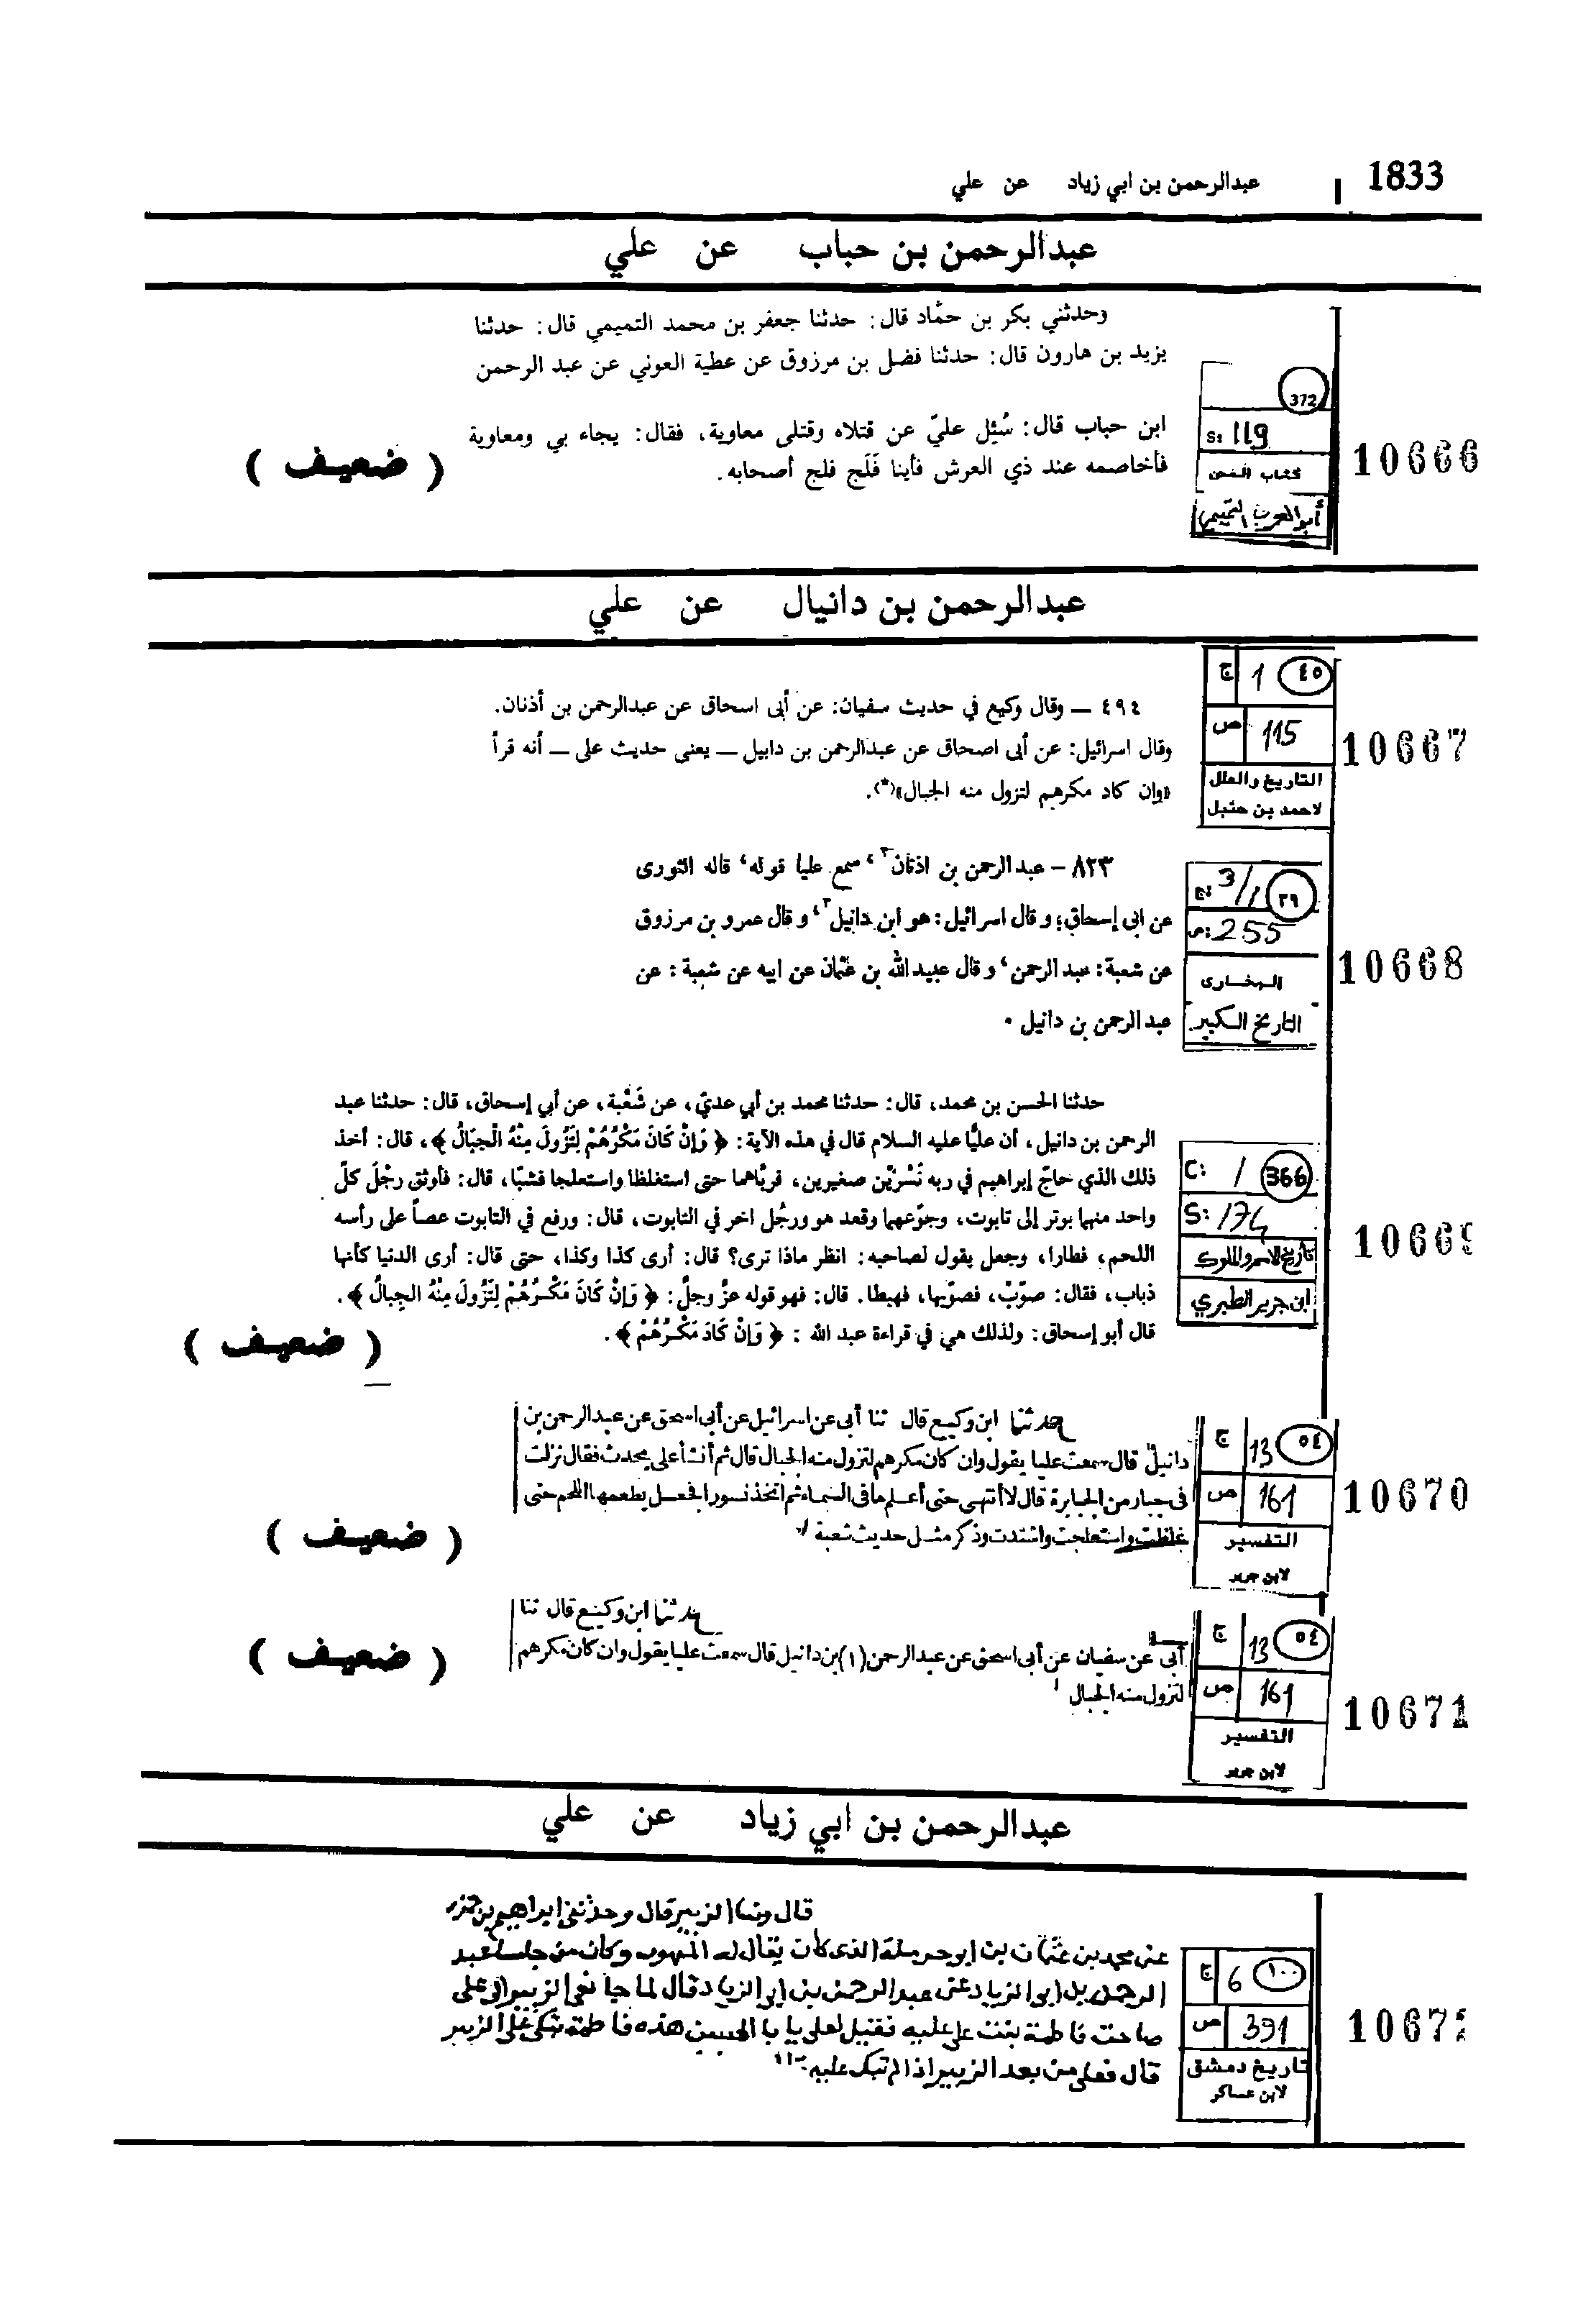 1833
عبدالرحمن بن ابي زياد عن علي
عبدالرحمن بن حباب عن علي
وحدثني بكر بن حمّاد قال: حدثنا جعفر بن محمد التميمي قال: حدثنا
يزيد بن هارون قال: حدثنا فضل بن مرزوق عن عطية العوني عن عبد الرحمن
ابن حباب قال: سُئِل عليّ عن قتلاه وقتلى معاوية، فقال: يجاء بي ومعاوية
فأخاصمه عند ذي العرش فأينا فَلَج فلج أصحابه.
( ضعيف )
372
S: 119
كتاب المحن
أبو العرب التميمي
10666
عبدالرحمن بن دانيال عن علي
٤٩٤ — وقال وكيع في حديث سفيان: عن أبى اسحاق عن عبدالرحمن بن أذنان.
وقال اسرائيل: عن أبى اصحاق عن عبدالرحمن بن دابيل — يعنى حديث على — أنه قرأ
«وان كاد مكرهم لتزول منه الجبال»(*).
ج 1 ٤٥
ص 115
التاريخ والعلل
لاحمد بن حنبل
10667
٨٢٣ – عبد الرحمن بن اذنان٢، سمع عليا قوله، قاله الثورى
عن ابى إسحاق؛ و قال اسرائيل: هو ابن دانيل٣، و قال عمرو بن مرزوق
عن شعبة: عبد الرحمن، و قال عبيد الله بن عثمان عن ابيه عن شعبة: عن
عبد الرحمن بن دانيل.
ج: 3/1 ٣٩
ص: 255
البخارى
التاريخ الكبير
10668
حدثنا الحسن بن محمد، قال: حدثنا محمد بن أبي عديّ، عن شُعْبة، عن أبي إسحاق، قال: حدثنا عبد
الرحمن بن دانيل، أن عليًّا عليه السلام قال في هذه الآية: ﴿ وَإِنْ كَانَ مَكْرُهُمْ لِتَزُولَ مِنْهُ الْجِبَالُ ﴾، قال: أخذ
ذلك الذي حاجّ إبراهيم في ربه نَسْرَيْن صغيرين، فربّاهما حتى استغلظا واستعلجا فشبّا، قال: فأوثق رجْل كلّ
واحد منهما بوتر إلى تابوت، وجوّعهما وقعد هو ورجُل اخر في التابوت، قال: ورفع في التابوت عصاً على رأسه
اللحم، فطارا، وجعل يقول لصاحبه: انظر ماذا ترى؟ قال: أرى كذا وكذا، حتى قال: أرى الدنيا كأنها
ذباب، فقال: صوّبْ، فصوّبها، فهبطا. قال: فهو قوله عزّ وجلّ: ﴿ وَإِنْ كَانَ مَكْرُهُمْ لِتَزُولَ مِنْهُ الجِبالُ ﴾.
قال أبو إسحاق: ولذلك هي في قراءة عبد الله : ﴿ وَإِنْ كَادَ مَكْرُهُمْ ﴾.
( ضعيف )
C: 1 366
S: 174
تاريخ الامم والملوك
ابن جرير الطبري
10669
حدثنا ابن وكيع قال ثنا أبى عن اسرائيل عن أبى اسحق عن عبد الرحمن بن
دانيل قال سمعت عليا يقول وان كان مكرهم لتزول منه الجبال قال ثم أنشأ على يحدث فقال نزلت
فى جبار من الجبابرة قال لا أنتهى حتى أعلم ما فى السماء ثم اتخذ نسورا فجعل يطعمها اللحم حتى
غلظت واستعلجت واشتدت وذكر مثل حديث شعبة
( ضعيف )
ج 13 ٥٤
ص 161
التفسير
لابن جرير
10670
حدثنا ابن وكيع قال ثنا
أبى عن سفيان عن أبى اسحق عن عبد الرحمن (١) بن دانيل قال سمعت عليا يقول وان كان مكرهم
لتزول منه الجبال
( ضعيف )
ج 13 ٥٤
ص 161
التفسير
لابن جرير
10671
عبدالرحمن بن ابي زياد عن علي
قال ونا الزبير قال وحدثني ابراهيم بن حمزة
عن محمد بن عثمان بن ابي حرملة الذي كان يقال له وكان من جلساء عبد
الرحمن بن ابي الزياد عن عبد الرحمن بن ابي الزياد قال لما جا نعي الزبير الى علي
صاحت فاطمة بنت علي عليه فقيل لعلي يا با الحسين هذه فاطمة تبكي على الزبير
قال فعلى من بعد الزبير اذا لم تبك عليه
ج 6 ١٠٠
ص 391
تاريخ دمشق
لابن عساكر